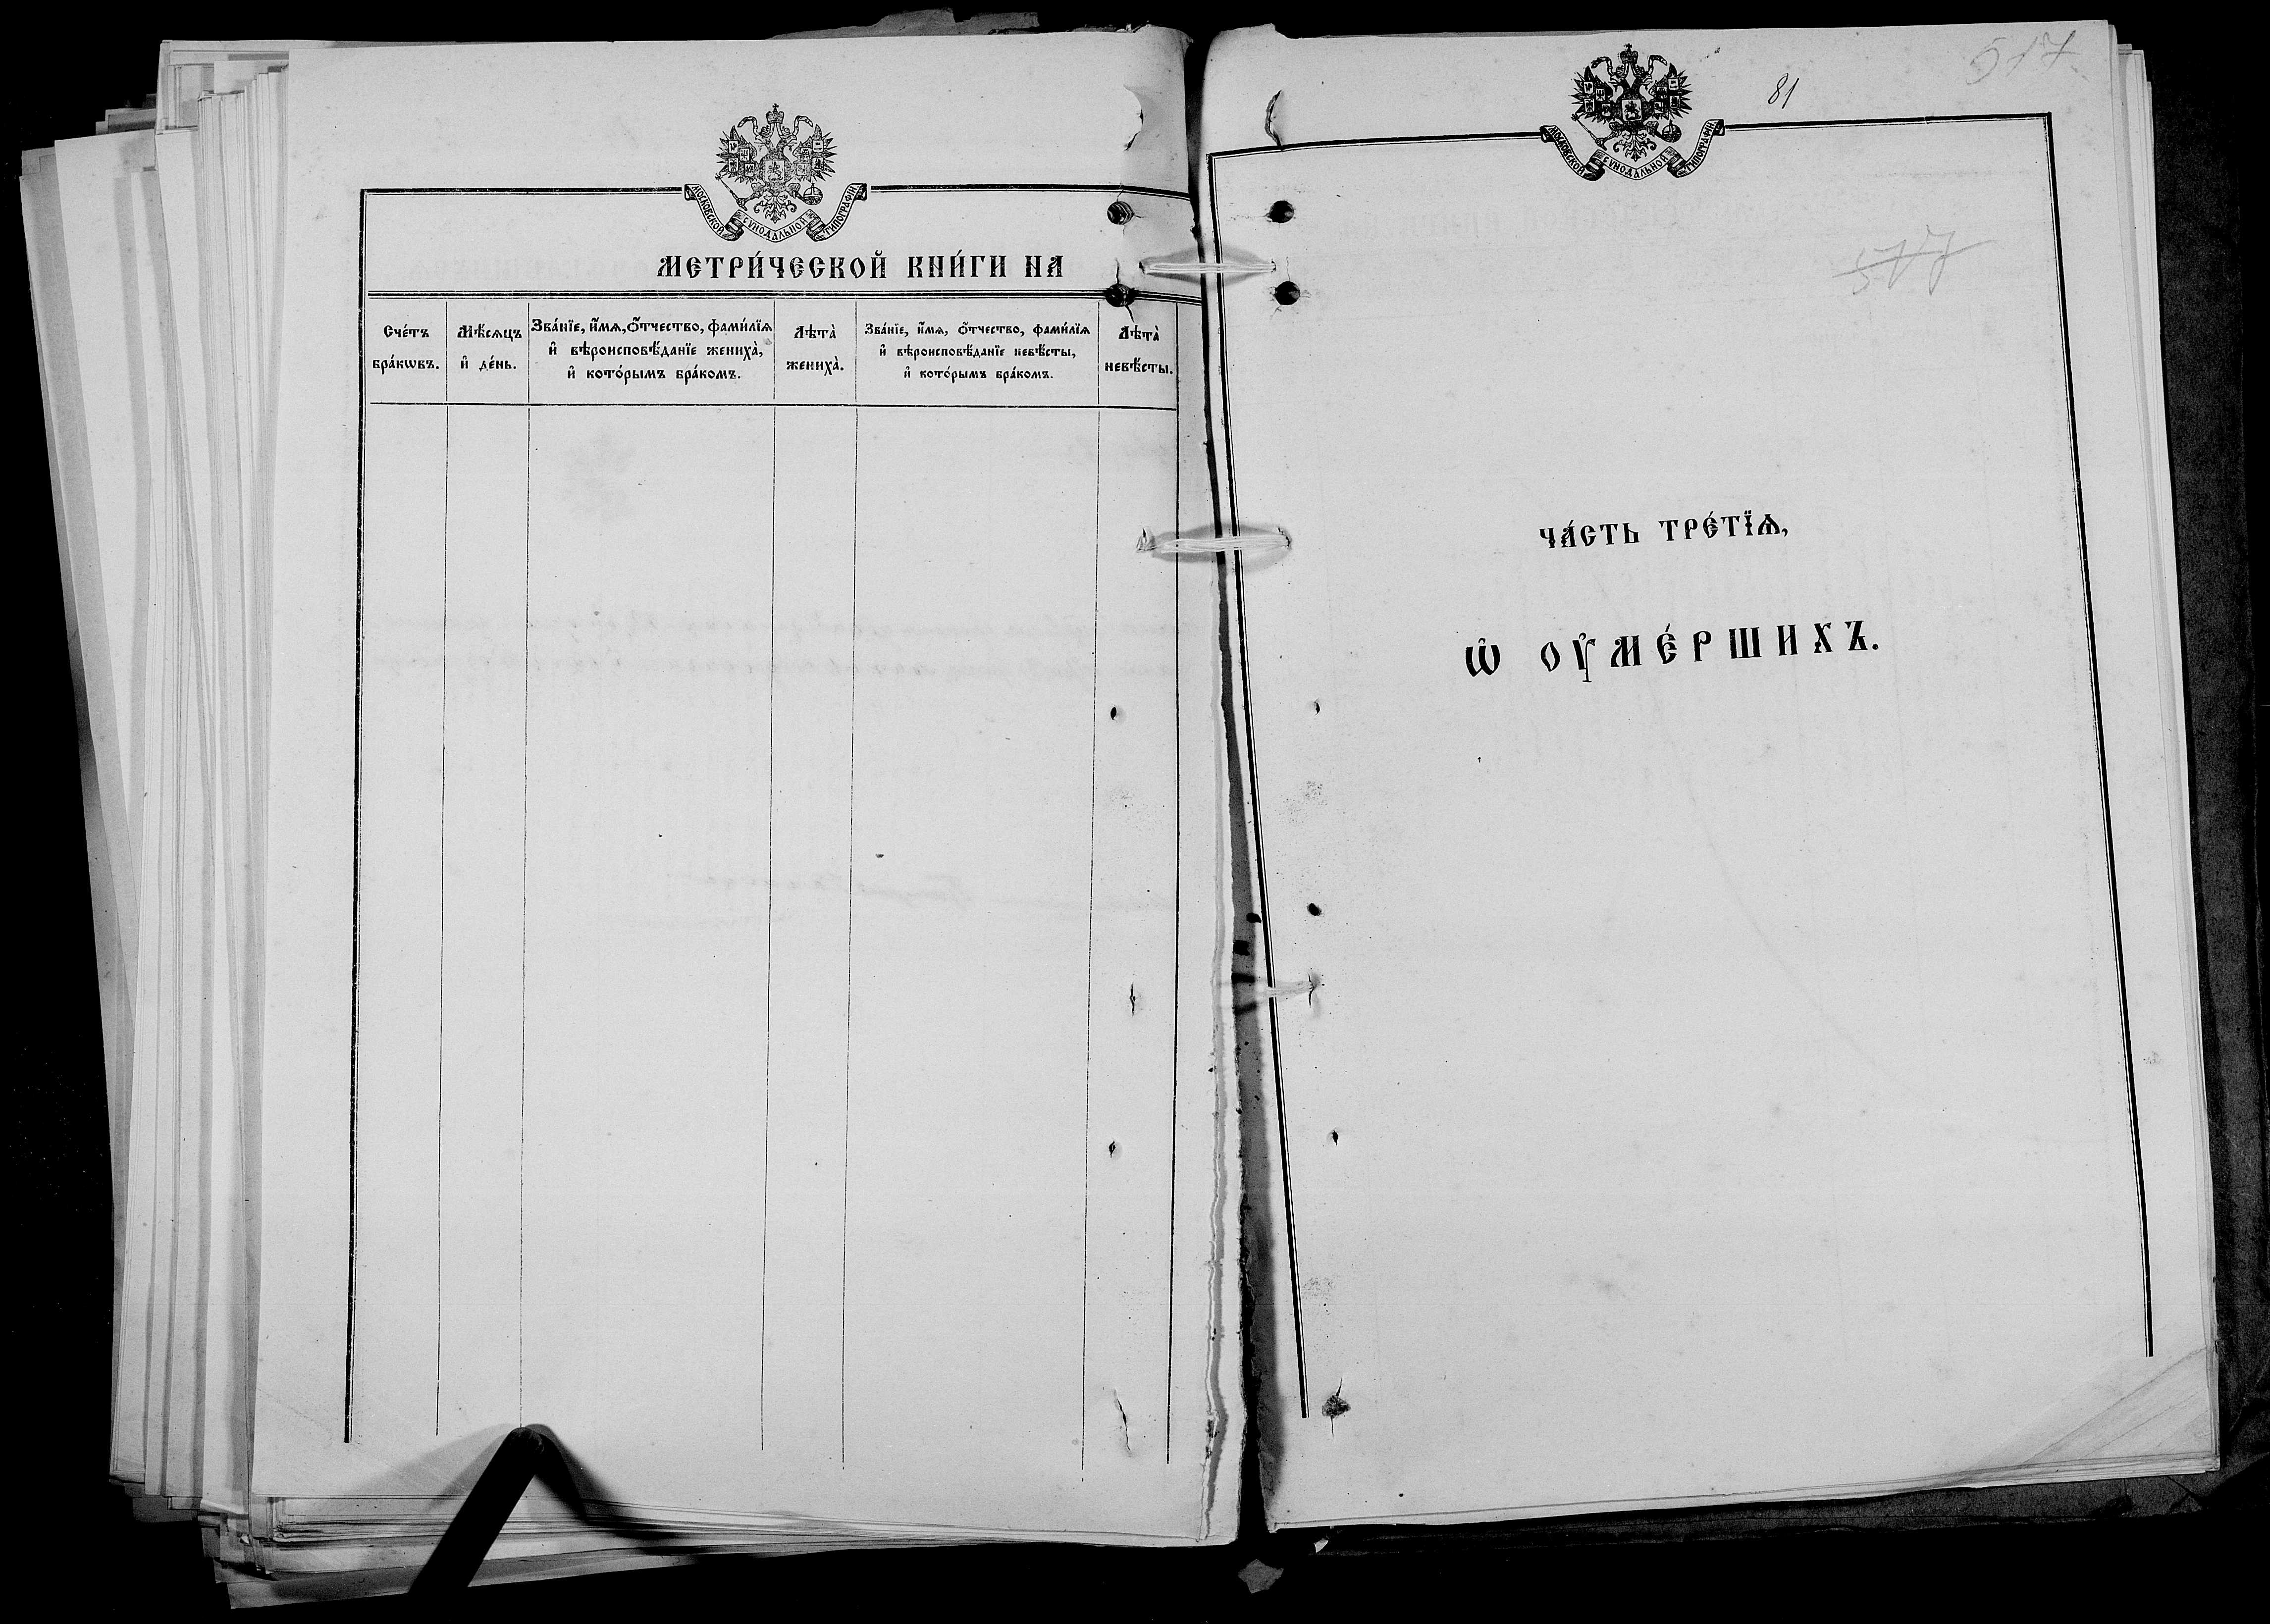 МОСКОВСКОЙ СѴНОДАЛЬНОЙ ТИПОГРАФІИ
МЕТРИ́ЧЕСКОЙ КНИ́ГИ НА
Сче́тъ бра́кѡвъ.
Мѣ́сѧцъ и҆ де́нь.
Зва́нїе, и҆́мѧ, ѻ҆́тчество, фами́лїѧ
и҆ вѣроисповѣ́данїе жениха̀,
и҆ кото́рымъ бра́комъ.
Лѣта̀
жениха̀.
Зва́нїе, и҆́мѧ, ѻ҆́тчество, фами́лїѧ
и҆ вѣроисповѣ́данїе невѣ́сты,
и҆ кото́рымъ бра́комъ.
Лѣта̀
невѣ́сты.
517
81
МОСКОВСКОЙ СѴНОДАЛЬНОЙ ТИПОГРАФІИ
517
ЧА́СТЬ ТРЕ́ТЇѦ,
Ѡ҆ ОУ҆МЕ́РШИХЪ.